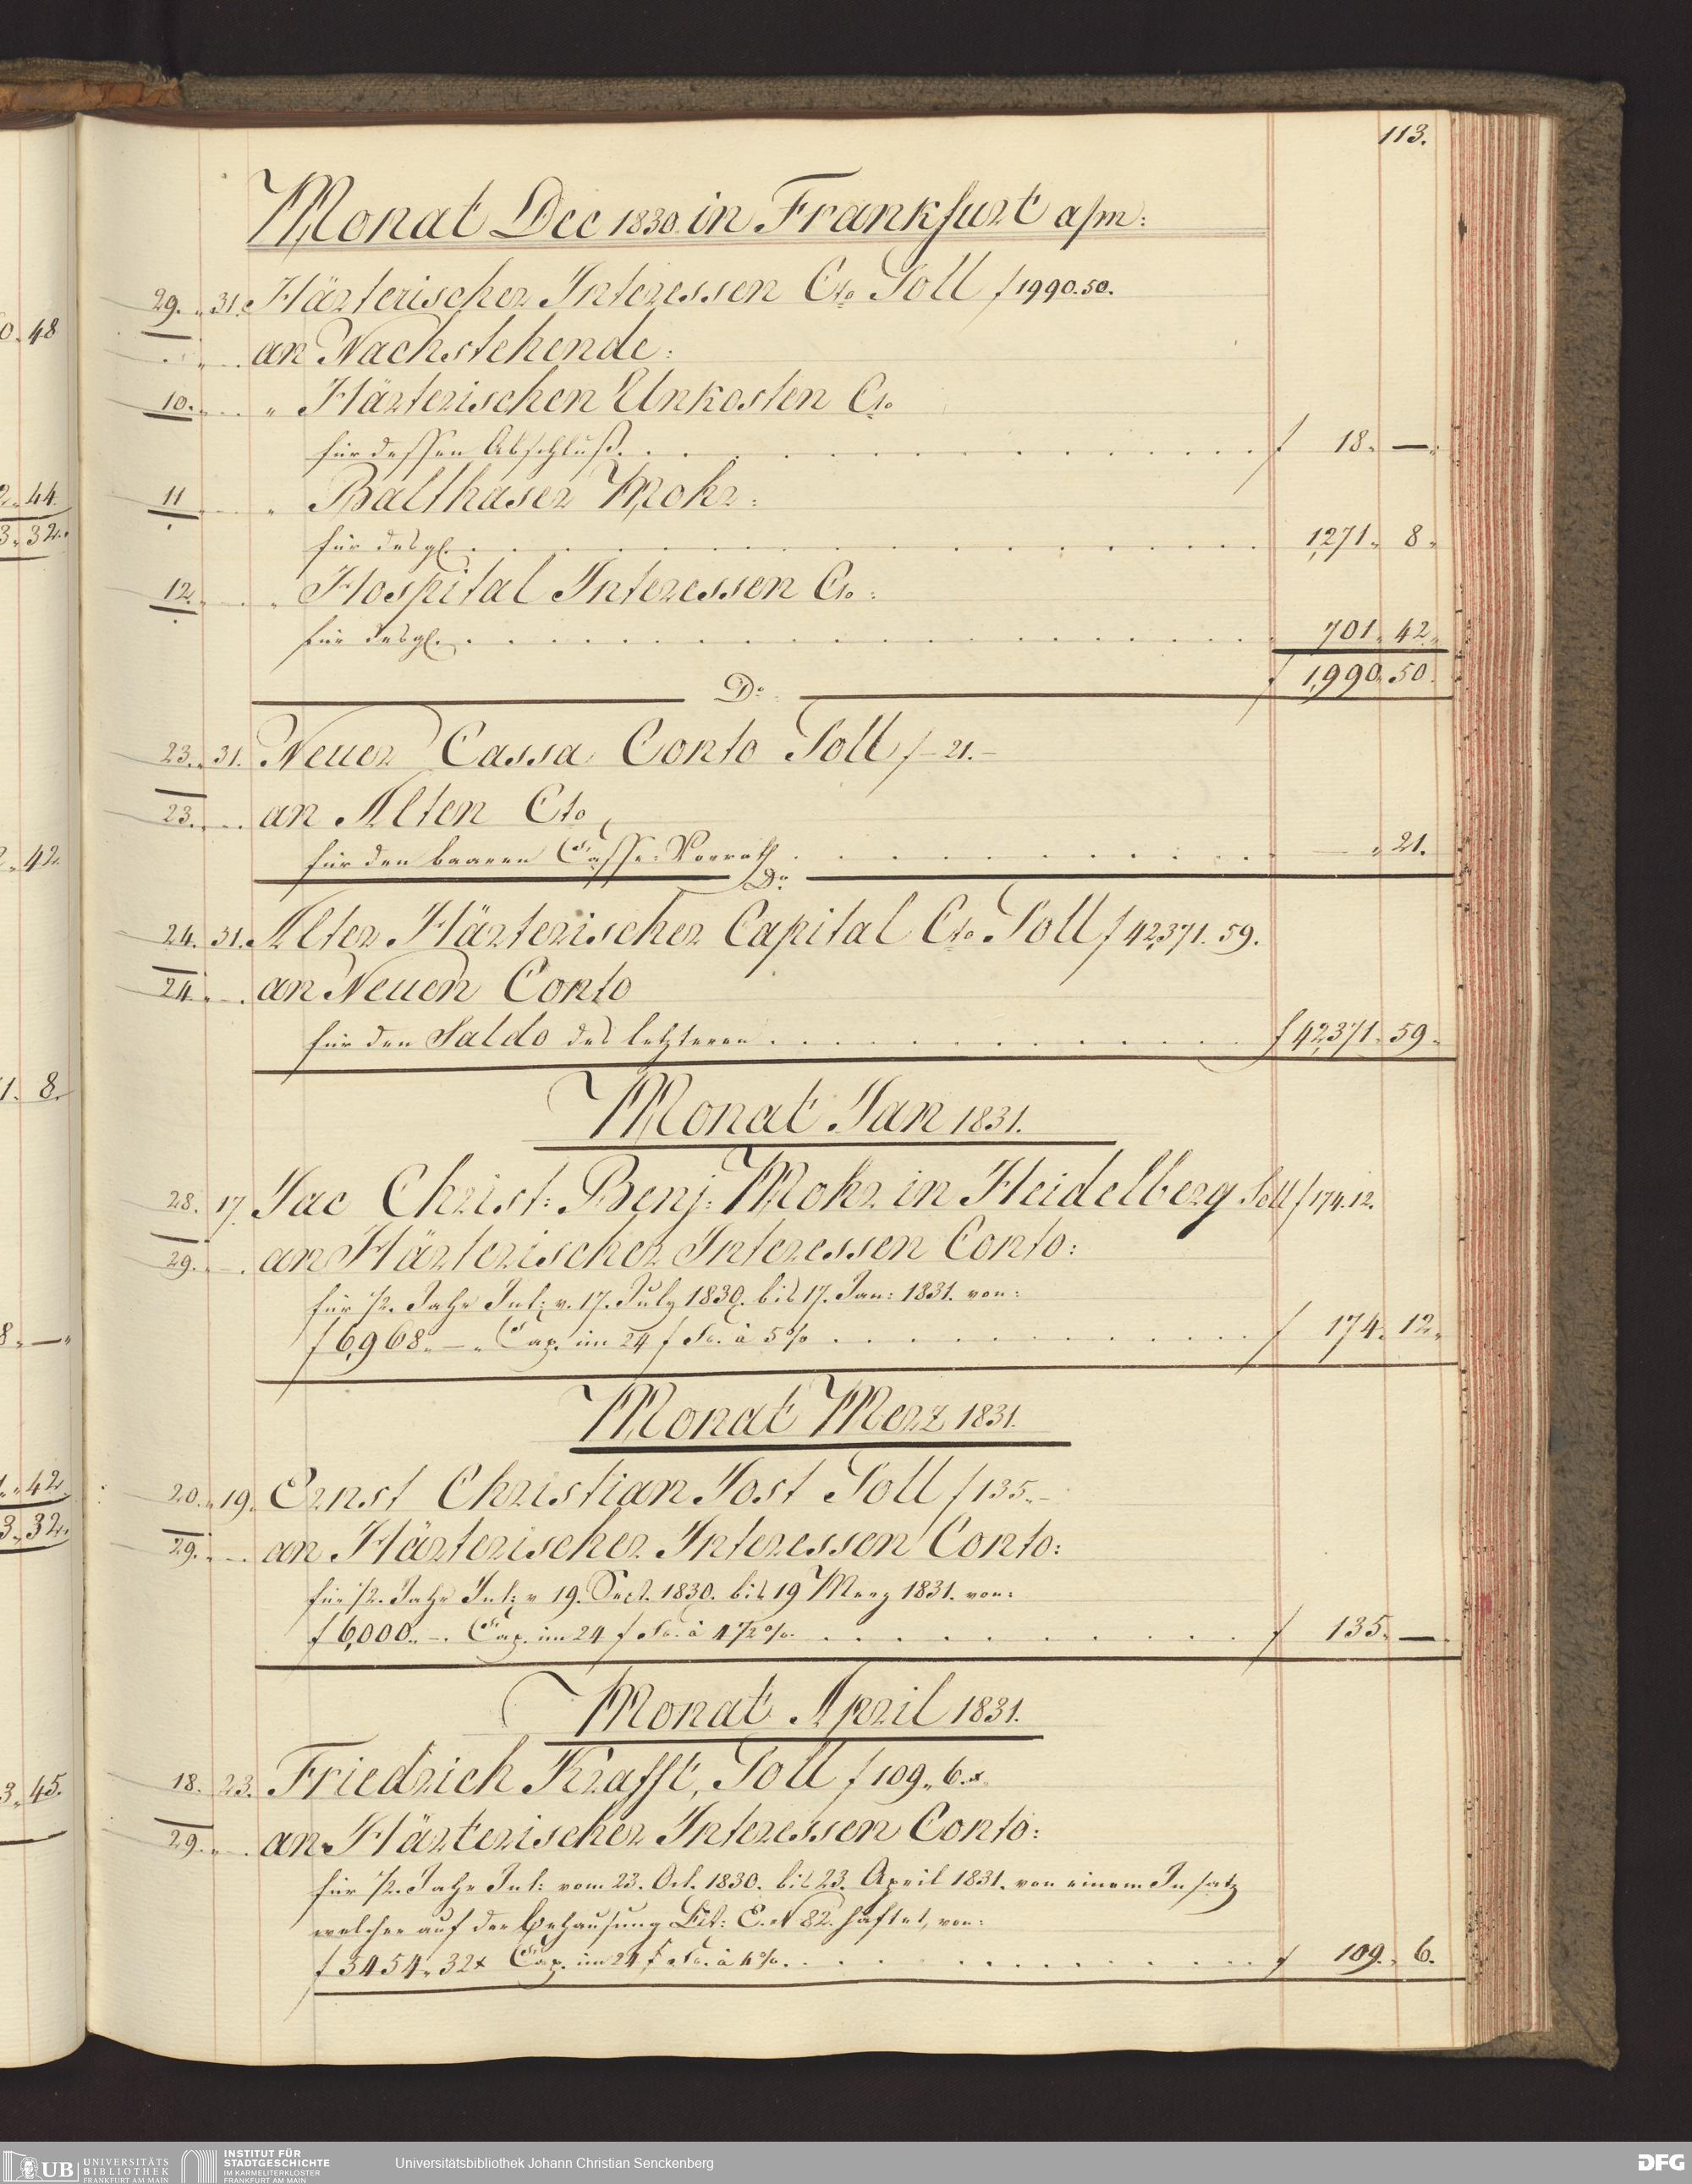 113.
Monat Dec 1830. in Frankfurt a/m:
29. 31. Härterischer Interessen Cto Soll f 1990.50.
an Nachstehende:
10. " Härterischen Unkosten Cto
für dessen Abschluß. f 18. —.
11 " Balthaser Mohr:
für desgl. 1,271. 8.
12. " Hospital Interessen Cto:
für desgl. 701. 42.
f 1,990. 50.
Do
23. 31. Neuer Cassa Conto Soll f — 21. —
23. an Alten Cto
für den baaren Casse-Vorrath " 21.
Do
24. 31. Alter Härterischer Capital Cto Soll f 42,371. 59.
24. an Neuen Conto
für den Saldo des letzteren f 42,371. 59.
Monat Jan 1831.
28. 17. Jac Christ: Benj: Mohr in Heidelberg Soll f 174.12.
29. an Härterischer Interessen Conto:
für 1/2. Jahr Int: v. 17. July 1830. bis 17. Jan: 1831. von:
f 6,968. — " Cap. im 24 f Fs. à 5% f 174. 12.
Monat Merz 1831.
20. 19. Ernst Christian Jost Soll f 135. —
29. an Härterischer Interessen Conto:
für 1/2. Jahr Int: v 19. Sept. 1830. bis 19 Merz 1831. von:
f 6,000. —. Cap. im 24 f Fs. à 4 1/2 %. f 135. —
Monat April 1831.
18. 23. Friedrich Krafft, Soll f 109. 6.x
29. an Härterischer Interessen Conto:
für 1/2. Jahr Int: vom 23. Oct. 1830. bis 23. April 1831. von einem Insatz
welcher auf der Behausung Lit: E. N 82. haftet, von:
f 5454. 32x Cap. im 24 f Fs. à 4%. f 109. 6.
0. 48
2. 44.
3. 32.
2. 42.
1. 8.
8. —"
1. 42.
3. 32.
3. 45.
UB UNIVERSITÄTS BIBLIOTHEK FRANKFURT AM MAIN
INSTITUT FÜR STADTGESCHICHTE IM KARMELITERKLOSTER FRANKFURT AM MAIN
Universitätsbibliothek Johann Christian Senckenberg
DFG